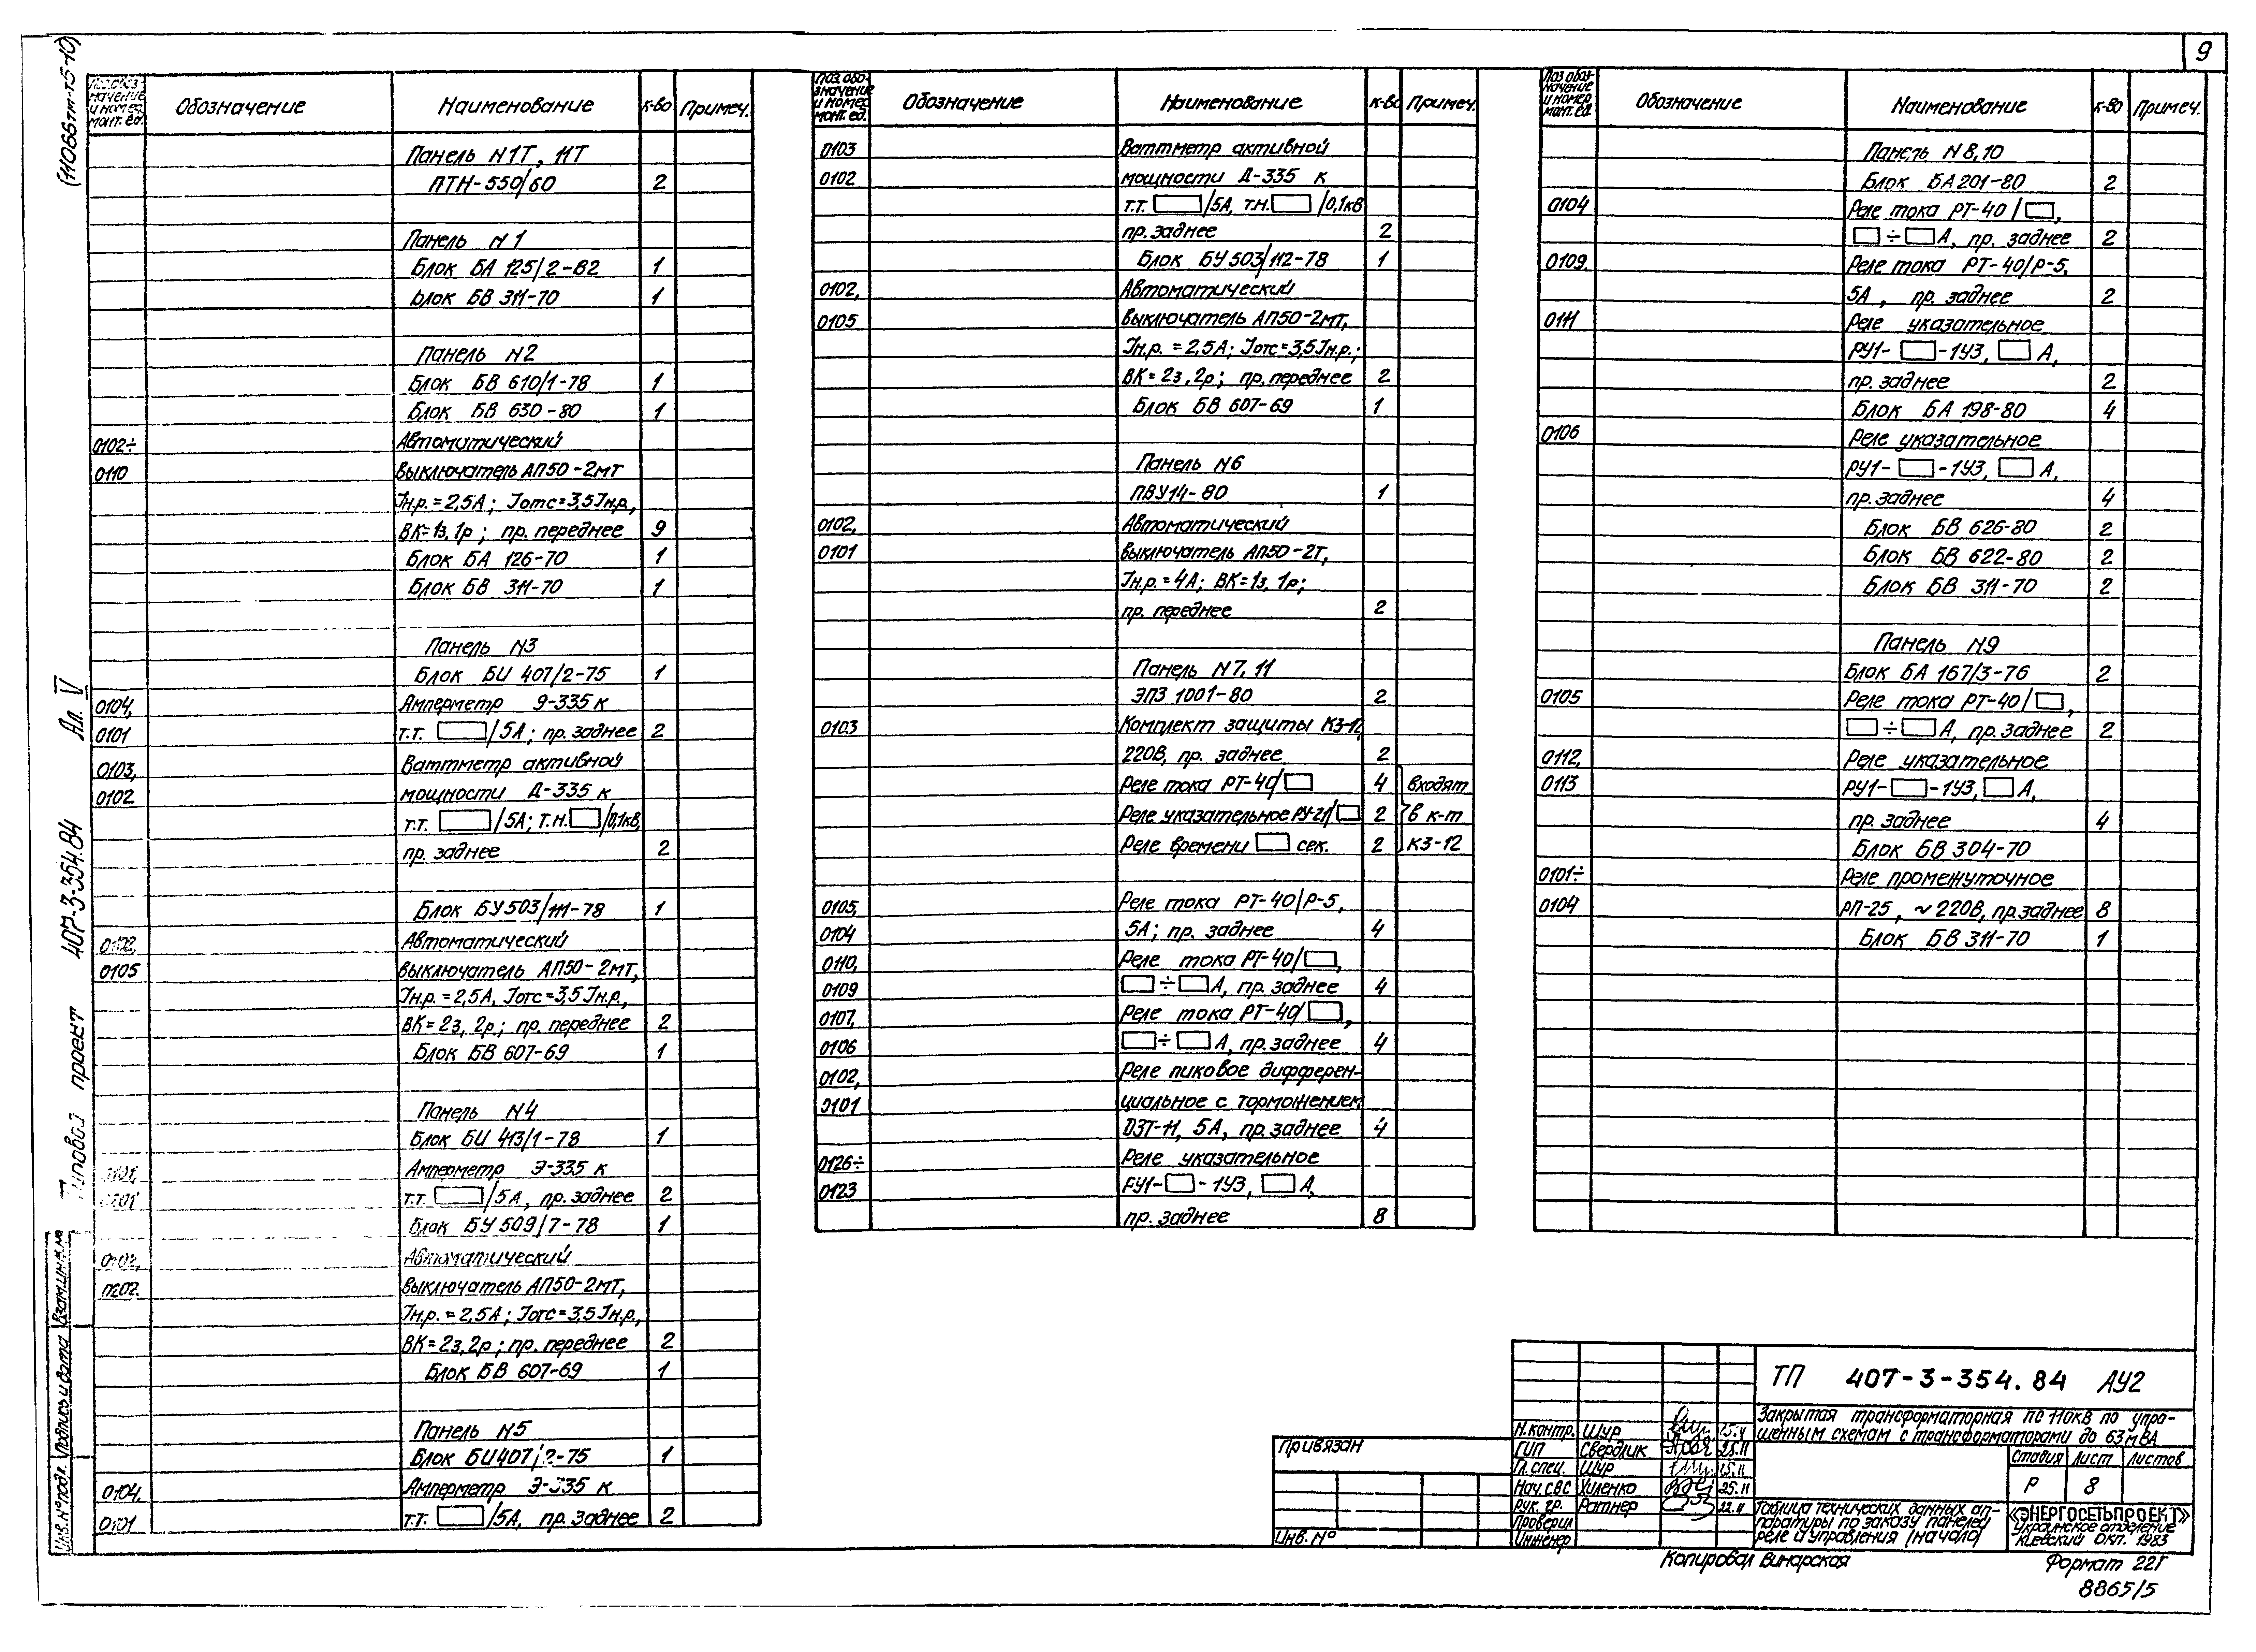 9
(11066тм-т5-10)
Ал. V
Типовой проект 407-3-354.84
Взам.инв.№
Подпись и дата
Инв.№ подл.
Поз.обоз-
начение
и номер
монт. ед.
Обозначение
Наименование
к-во
Примеч.
Панель N1Т, 11Т
ПТН-550/60 2
Панель N1
Блок БА 125/2-82 1
Блок БВ 311-70 1
Панель N2
Блок БВ 610/1-78 1
Блок БВ 630-80 1
0102÷ Автоматический
0110 выключатель АП50-2мт
Iн.р.=2,5А; Iотс=3,5Iн.р.,
ВК=1з,1р; пр. переднее 9
Блок БА 126-70 1
Блок БВ 311-70 1
Панель N3
Блок БИ 407/2-75 1
0104, Амперметр Э-335 к
0101 т.т. /5А; пр. заднее 2
0103, Ваттметр активной
0102 мощности Д-335 к
т.т. /5А; т.н. /0,1кв,
пр. заднее 2
Блок БУ503/111-78 1
0102, Автоматический
0105 выключатель АП50-2мт,
Iн.р.=2,5А, Iотс=3,5Iн.р.,
ВК=2з, 2р; пр. переднее 2
Блок БВ 607-69 1
Панель N4
Блок БИ 413/1-78 1
0101, Амперметр Э-335 к
0201 т.т. /5А, пр. заднее 2
Блок БУ509/7-78 1
0102, Автоматический
0202 выключатель АП50-2мт,
Iн.р.=2,5А; Iотс=3,5Iн.р.,
ВК=2з,2р; пр. переднее 2
Блок БВ 607-69 1
Панель N5
Блок БИ407/2-75 1
0104, Амперметр Э-335 к
0101 т.т. /5А, пр. заднее 2
Поз. обо-
значение
и номер
монт. ед.
Обозначение
Наименование
к-во
Примеч.
0103 Ваттметр активной
0102 мощности Д-335 к
т.т. /5А, т.н. /0,1кв
пр. заднее 2
Блок БУ503/112-78 1
0102, Автоматический
0105 выключатель АП50-2мт,
Iн.р.=2,5А; Iотс=3,5Iн.р.;
ВК=2з,2р; пр. переднее 2
Блок БВ 607-69 1
Панель N6
ПВУ14-80 1
0102, Автоматический
0101 выключатель АП50-2Т,
Iн.р.=4А; ВК=1з, 1р;
пр. переднее 2
Панель N7, 11
ЭПЗ 1001-80 2
0103 Комплект защиты КЗ-12,
220В, пр. заднее 2
Реле тока РТ-40/ 4 входят
Реле указательное РУ-21/ 2 в к-т
Реле времени сек. 2 КЗ-12
0105, Реле тока РТ-40/Р-5,
0104 5А; пр. заднее 4
0110, Реле тока РТ-40/ ,
0109 ÷ А, пр. заднее 4
0107, Реле тока РТ-40/ ,
0106 ÷ А, пр. заднее 4
0102, Реле пиковое дифферен-
0101 циальное с торможением
ДЗТ-11, 5А, пр. заднее 4
0126÷ Реле указательное
0123 РУ1- -1У3, А,
пр. заднее 8
Поз обоз-
начение
и номер
монт. ед.
Обозначение
Наименование
к-во
Примеч.
Панель N8,10
Блок БА201-80 2
0104 Реле тока РТ-40/ ,
÷ А, пр. заднее 2
0109, Реле тока РТ-40/Р-5,
5А, пр. заднее 2
0111 Реле указательное
РУ1- -1У3, А,
пр. заднее 2
Блок БА 198-80 4
0106 Реле указательное
РУ1- -1У3, А,
пр. заднее 4
Блок БВ 626-80 2
Блок БВ 622-80 2
Блок БВ 311-70 2
Панель N9
Блок БА 167/3-76 2
0105 Реле тока РТ-40/ ,
÷ А, пр. заднее 2
0112, Реле указательное
0113 РУ1- -1У3, А,
пр. заднее 4
Блок БВ 304-70
0101÷ Реле промежуточное
0104 РП-25, ~220В, пр.заднее 8
Блок БВ 311-70 1
Привязан
Инв. №
ТП 407-3-354.84 АУ2
Закрытая трансформаторная пс 110кВ по упро-
щенным схемам с трансформаторами до 63мВА
Н.контр. Шур
ГИП Свердлик
Гл. спец. Шур
Нач.СВС Хиленко 25.11
Рук. гр. Ратнер 22.11
Проверил
Инженер
Стадия Лист Листов
Р 8
Таблица технических данных ап-
паратуры по заказу панелей
реле и управления (начало)
«ЭНЕРГОСЕТЬПРОЕКТ»
Украинское отделение
Киевский ОКП. 1983
Копировал Винарская
Формат 22Г
8865/5